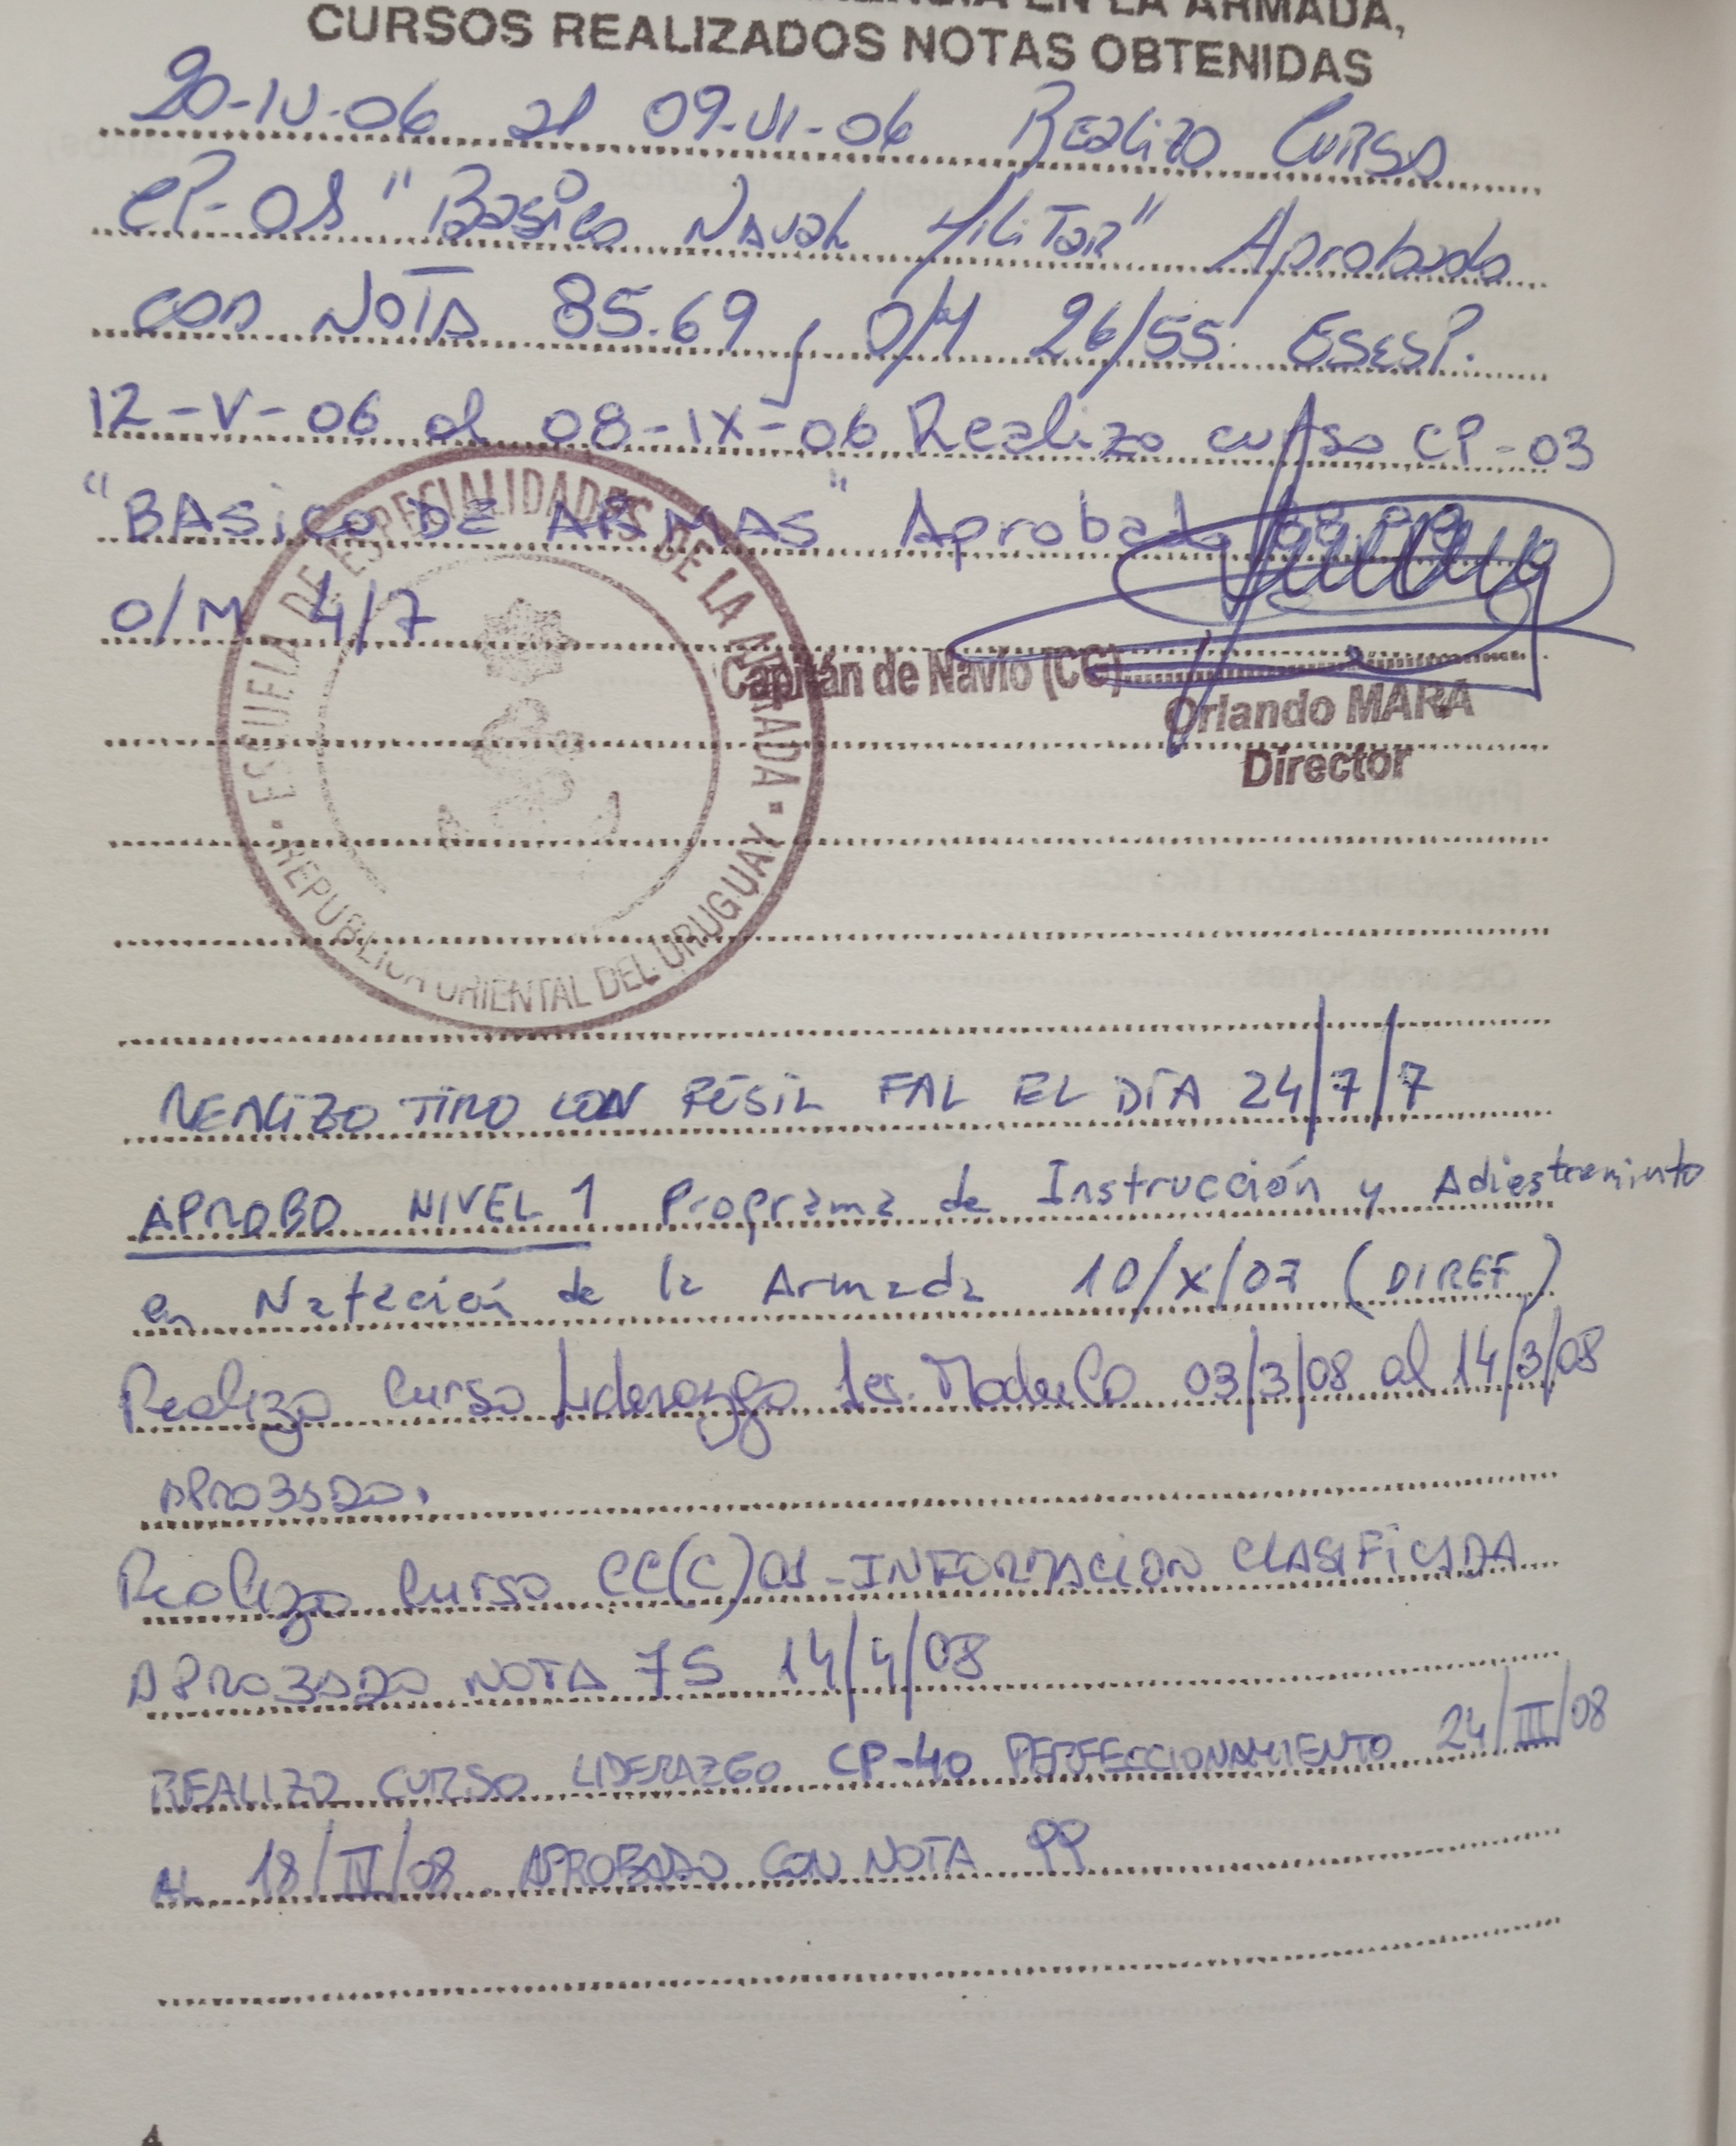 EN LA ARMADA,
CURSOS REALIZADOS NOTAS OBTENIDAS
20-IV-06 al 09-VI-06 Realizo Curso
CP-01 "Basico Naval Militar" Aprobado
con NOTA 85.69, O/M 26/55 ESESP.
12-V-06 al 08-IX-06 Realizo curso CP-03
"BASICO DE ARMAS" Aprobad
O/M 4/7
ESCUELA DE ESPECIALIDADES DE LA ARMADA
REPUBLICA ORIENTAL DEL URUGUAY
Capitán de Navío (CG)
Orlando MARA
Director
REALIZO TIRO CON FUSIL FAL EL DÍA 24/7/7
APROBO NIVEL 1 Programa de Instrucción y Adiestramiento
en Natación de la Armada 10/X/07 (DIREF)
Realizo Curso Liderazgo 1er. Modulo 03/3/08 al 14/3/08
APROBADO.
Realizo Curso CC(C)01-INFORMACION CLASIFICADA
APROBADO NOTA 75 14/4/08
REALIZO CURSO LIDERAZGO CP-40 PERFECCIONAMIENTO 24/III/08
AL 18/IV/08. APROBADO CON NOTA 99
4